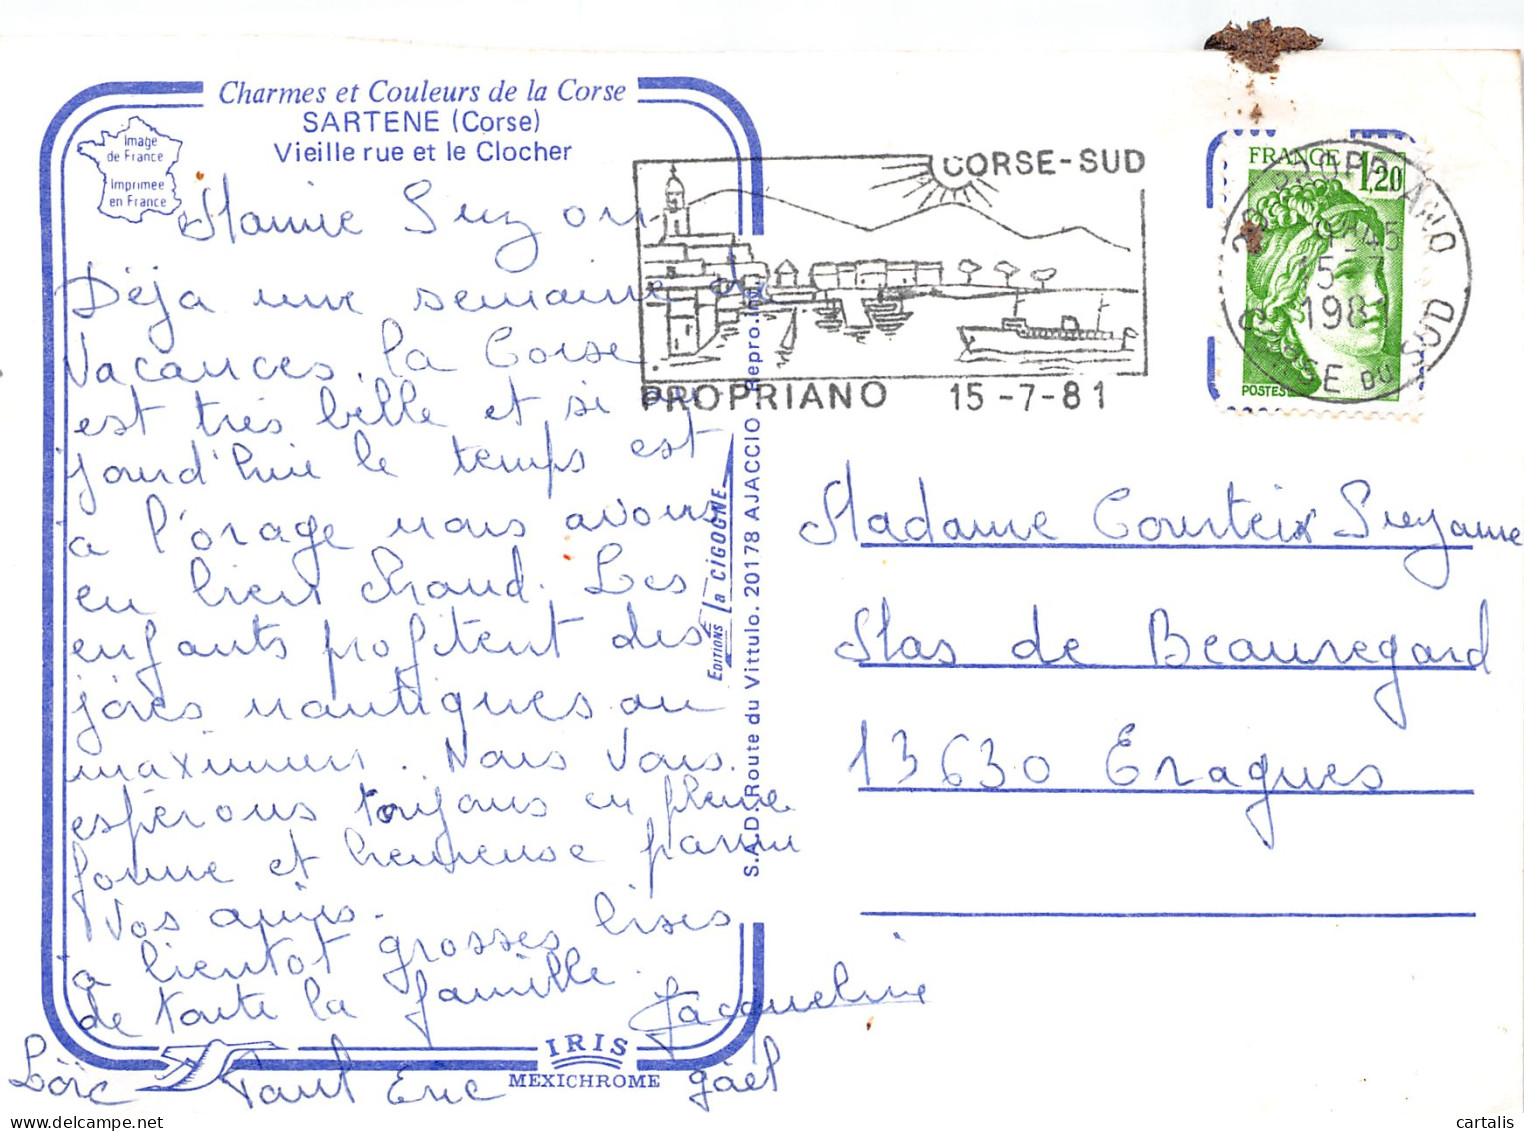 Charmes et Couleurs de la Corse
SARTENE (Corse)
Vieille rue et le Clocher
Image
de France
Imprimée
en France
Mamie Suzon
Déja une semaine de
Vacances. la Corse
est très belle et si au
jourd'hui le temps est
à l'orage nous avons
eu bien chaud. Les
enfants profitent des
joies nautiques au
maximum. Nous Vous
espérons toujours en pleine
forme et heureuse parmi
Vos amis.
a bientot grosses bises
de toute la famille.
Jacqueline
Loïc Paul Eric gaël
IRIS
MEXICHROME
EDITIONS la CIGOGNE
S.A.D. Route du Vittulo. 20178 AJACCIO Repro. in
CORSE-SUD
PROPRIANO 15-7-81
FRANCE 1,20
POSTES
20 PROPRIANO
9H45
15-7
1981
CORSE DU SUD
Madame Courteix Suzanne
Mas de Beauregard
13630 Eragues
cartalis